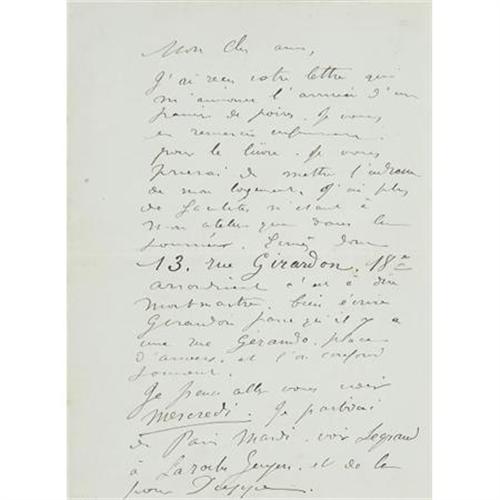 Mon cher ami,
J'ai reçu votre lettre qui
m'annonce l'arrivée d'un
panier de poires. Je vous
en remercie infiniment.
pour le livre. Je vous
prierai de mettre l'adresse
de mon logement, j'ai plus
de facilités n'étant à
mon atelier que dans la
journée. Ecrivez donc
13. rue Girardon. 18e
arrondiment c'est à dire
Montmartre. bien écrire
Girardon parce qu'il y a
une rue Gérando. place
d'anvers. et l'on confond
souvent.
Je pense aller vous voir
Mercredi. Je partirai
de Paris Mardi. voir Legrand
à Laroche Guyon. et de là
pour Dieppe.